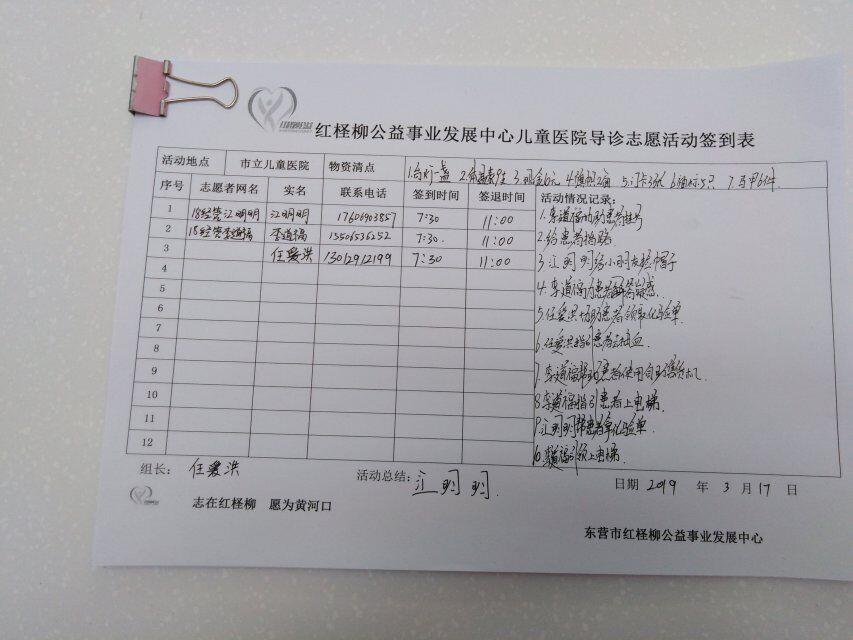 红柽柳公益事业发展中心儿童医院导诊志愿活动签到表
活动地点 市立儿童医院 物资清点 1.台灯一盏 3.现金6元 7.马甲6件
序号 志愿者网名 实名 联系电话 签到时间 签退时间 活动情况记录:
1 18经贸江明明 江明明 17606903857 7:30 11:00
2 18经贸李道福 李道福 15506536252 7:30. 11:00
3 任爱洪 13012912199 7:30 11:00
4
5
6
7
8
9
10
11
12
1.李道福帮助患者挂号
2.给患者指路
3.江明明给小朋友捡帽子
4.李道福为患者解答疑惑
5.任爱洪协助患者领取化验单
6.任爱洪指引患者去抽血
7.李道福帮助患者使用自助缴费机.
8.李道福指引患者上电梯
9.江明明帮患者拿化验单
10.李道福引领上电梯
组长: 任爱洪 活动总结: 江明明. 日期 2019 年 3 月 17 日
志在红柽柳 愿为黄河口
东营市红柽柳公益事业发展中心